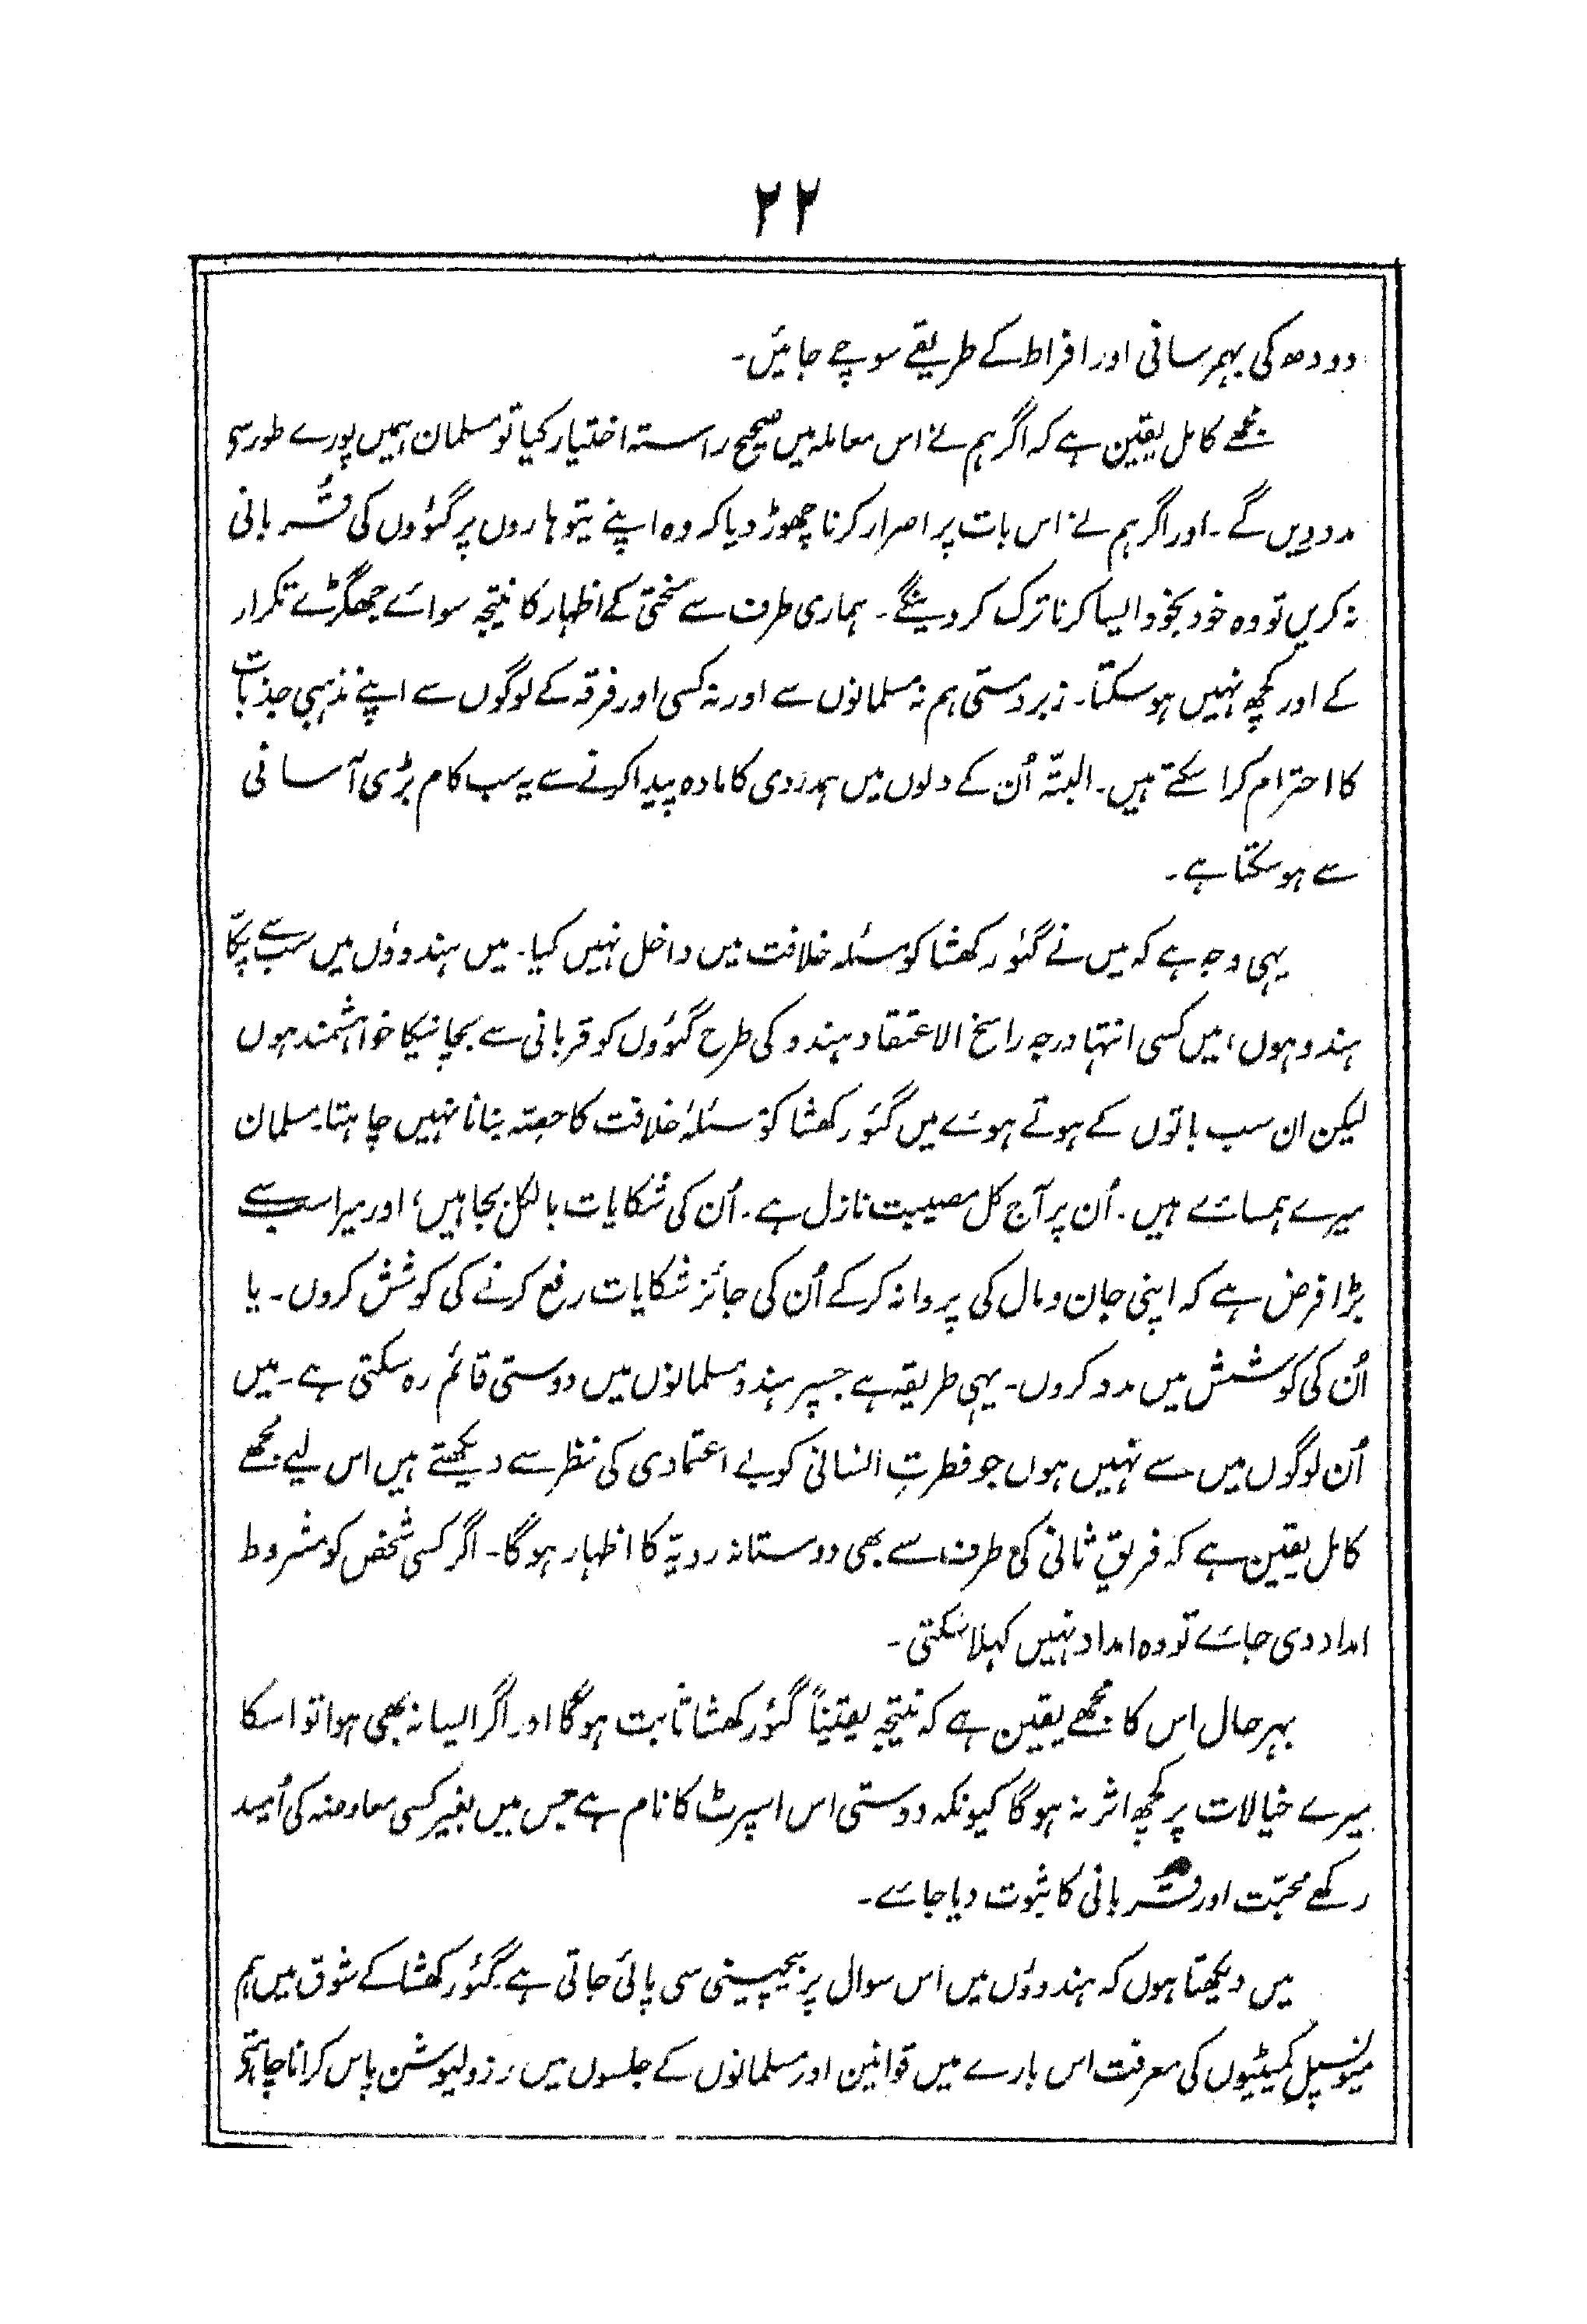 ۲۲
دودھ کی بہمرسانی اور افراط کے طریقے سوچے جائیں۔
مجھے کامل یقین ہے کہ اگر ہم نے اس معاملہ میں صحیح راستہ اختیار کیا تو مسلمان ہمیں پورے طور سی
مدد دیں گے۔ اور اگر ہم نے اس بات پر اصرار کرنا چھوڑ دیا کہ وہ اپنے تیوہاروں پر گئوؤں کی قُربانی
نہ کریں تو وہ خود بخود ایسا کرنا ترک کر دینگے۔ ہماری طرف سے سختی کے اظہار کا نتیجہ سوائے جھگڑے تکرار
کے اور کچھ نہیں ہو سکتا۔ زبردستی ہم نہ مسلمانوں سے اور نہ کسی اور فرقہ کے لوگوں سے اپنے مذہبی جذبات
کا احترام کرا سکتے ہیں۔ البتّہ اُن کے دلوں میں ہمدردی کا مادہ پیدا کرنے سے یہ سب کام بڑی آسانی
سے ہو سکتا ہے۔
یہی وجہ ہے کہ میں نے گئو رکھشا کو مسئلہ خلافت میں داخل نہیں کیا۔ میں ہندوؤں میں سب سے پکّا
ہندو ہوں، میں کسی انتہا درجہ راسخ الاعتقاد ہندو کی طرح گئوؤں کو قربانی سے بچانیکا خواہشمند ہوں
لیکن ان سب باتوں کے ہوتے ہوئے میں گئو رکھشا کو مسئلۂ خلافت کا حصّہ بنانا نہیں چاہتا۔ مسلمان
میرے ہمسائے ہیں۔ اُن پر آج کل مصیبت نازل ہے۔ اُن کی شکایات بالکل بجا ہیں، اور میرا سب سے
بڑا فرض ہے کہ اپنی جان و مال کی پروا نہ کر کے اُن کی جائز شکایات رفع کرنے کی کوشش کروں۔ یا
اُن کی کوشش میں مدد کروں۔ یہی طریقہ ہے جسپر ہندو مسلمانوں میں دوستی قائم رہ سکتی ہے۔ میں
اُن لوگوں میں سے نہیں ہوں جو فطرتِ انسانی کو بے اعتمادی کی نظر سے دیکھتے ہیں اس لیے مجھے
کامل یقین ہے کہ فریقِ ثانی کی طرف سے بھی دوستانہ رویّہ کا اظہار ہوگا۔ اگر کسی شخص کو مشروط
امداد دی جائے تو وہ امداد نہیں کہلا سکتی۔
بہرحال اس کا مجھے یقین ہے کہ نتیجہ یقیناً گئو رکھشا ثابت ہوگا اور اگر ایسا نہ بھی ہوا تو اسکا
میرے خیالات پر کچھ اثر نہ ہوگا کیونکہ دوستی اس اسپرٹ کا نام ہے جس میں بغیر کسی معاوضہ کی اُمید
رکھے محبّت اور قربانی کا ثبوت دیا جائے۔
میں دیکھتا ہوں کہ ہندوؤں میں اس سوال پر بیچینی سی پائی جاتی ہے۔ گئو رکھشا کے شوق میں ہم
میونسپل کمیٹیوں کی معرفت اس بارے میں قوانین اور مسلمانوں کے جلسوں میں رزولیوشن پاس کرانا چاہتے